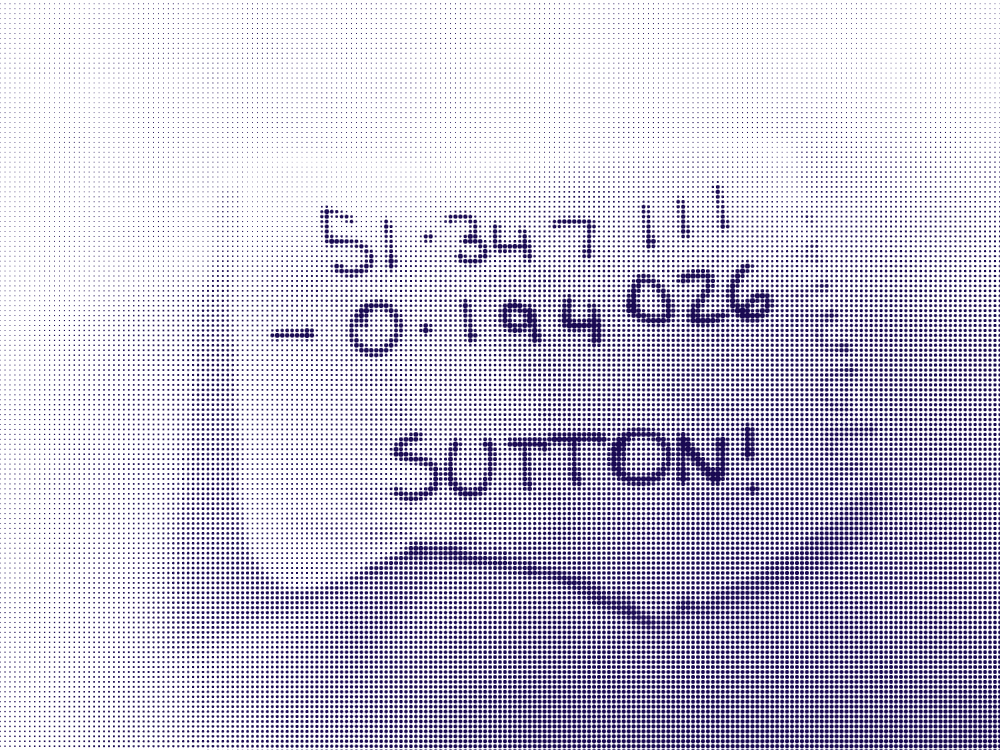 51.347 111
- 0.194 026
SUTTON!